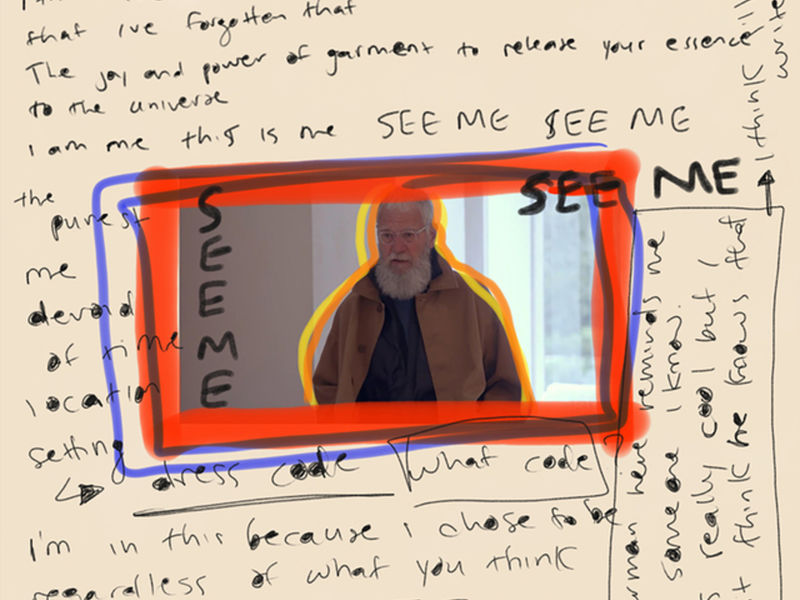 that ive forgotten that
The joy and power of garment to release your essence
to the universe
I am me this is me SEE ME SEE ME
SEE ME
SEE ME
the
purest
me
devoid
of time
location
setting
dress code what code
I'm in this because i chose to be
regardless of what you think
man here reminds me
someone I know.
really cool but I
think he knows that
I think